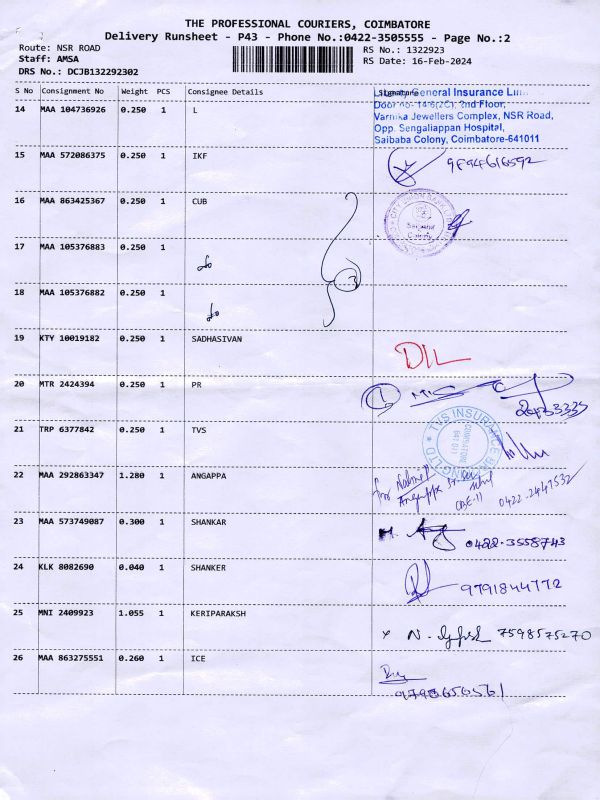 THE PROFESSIONAL COURIERS, COIMBATORE
Delivery Runsheet - P43 - Phone No.:0422-3505555 - Page No.:2
Route: NSR ROAD
RS No.: 1322923
Staff: AMSA
RS Date: 16-Feb-2024
DRS No.: DCJB132292302
S No Consignment No Weight PCS Consignee Details Signature
General Insurance
14 MAA 104736926 0.250 1 L
2nd Floor,
Varnika Jewellers Complex, NSR Road,
Opp. Sengaliappan Hospital,
Saibaba Colony, Coimbatore-641011
15 MAA 572086375 0.250 1 IKF
16 MAA 863425367 0.250 1 CUB
CITY UNION BANK
Colony
17 MAA 105376883 0.250 1
do
3
18 MAA 105376882 0.250 1
do
19 KTY 10019182 0.250 1 SADHASIVAN
DIL
20 MTR 2424394 0.250 1 PR
1
21 TRP 6377842 0.250 1 TVS
TVS INSURANCE BROKING LTD
COIMBATORE
641 011
22 MAA 292863347 1.280 1 ANGAPPA
for
0422-2441532
23 MAA 573749087 0.300 1 SHANKAR
0422-3558743
24 KLK 8082690 0.040 1 SHANKER
9791844772
25 MNI 2409923 1.055 1 KERIPARAKSH
x N. 7598575270
26 MAA 863275551 0.260 1 ICE